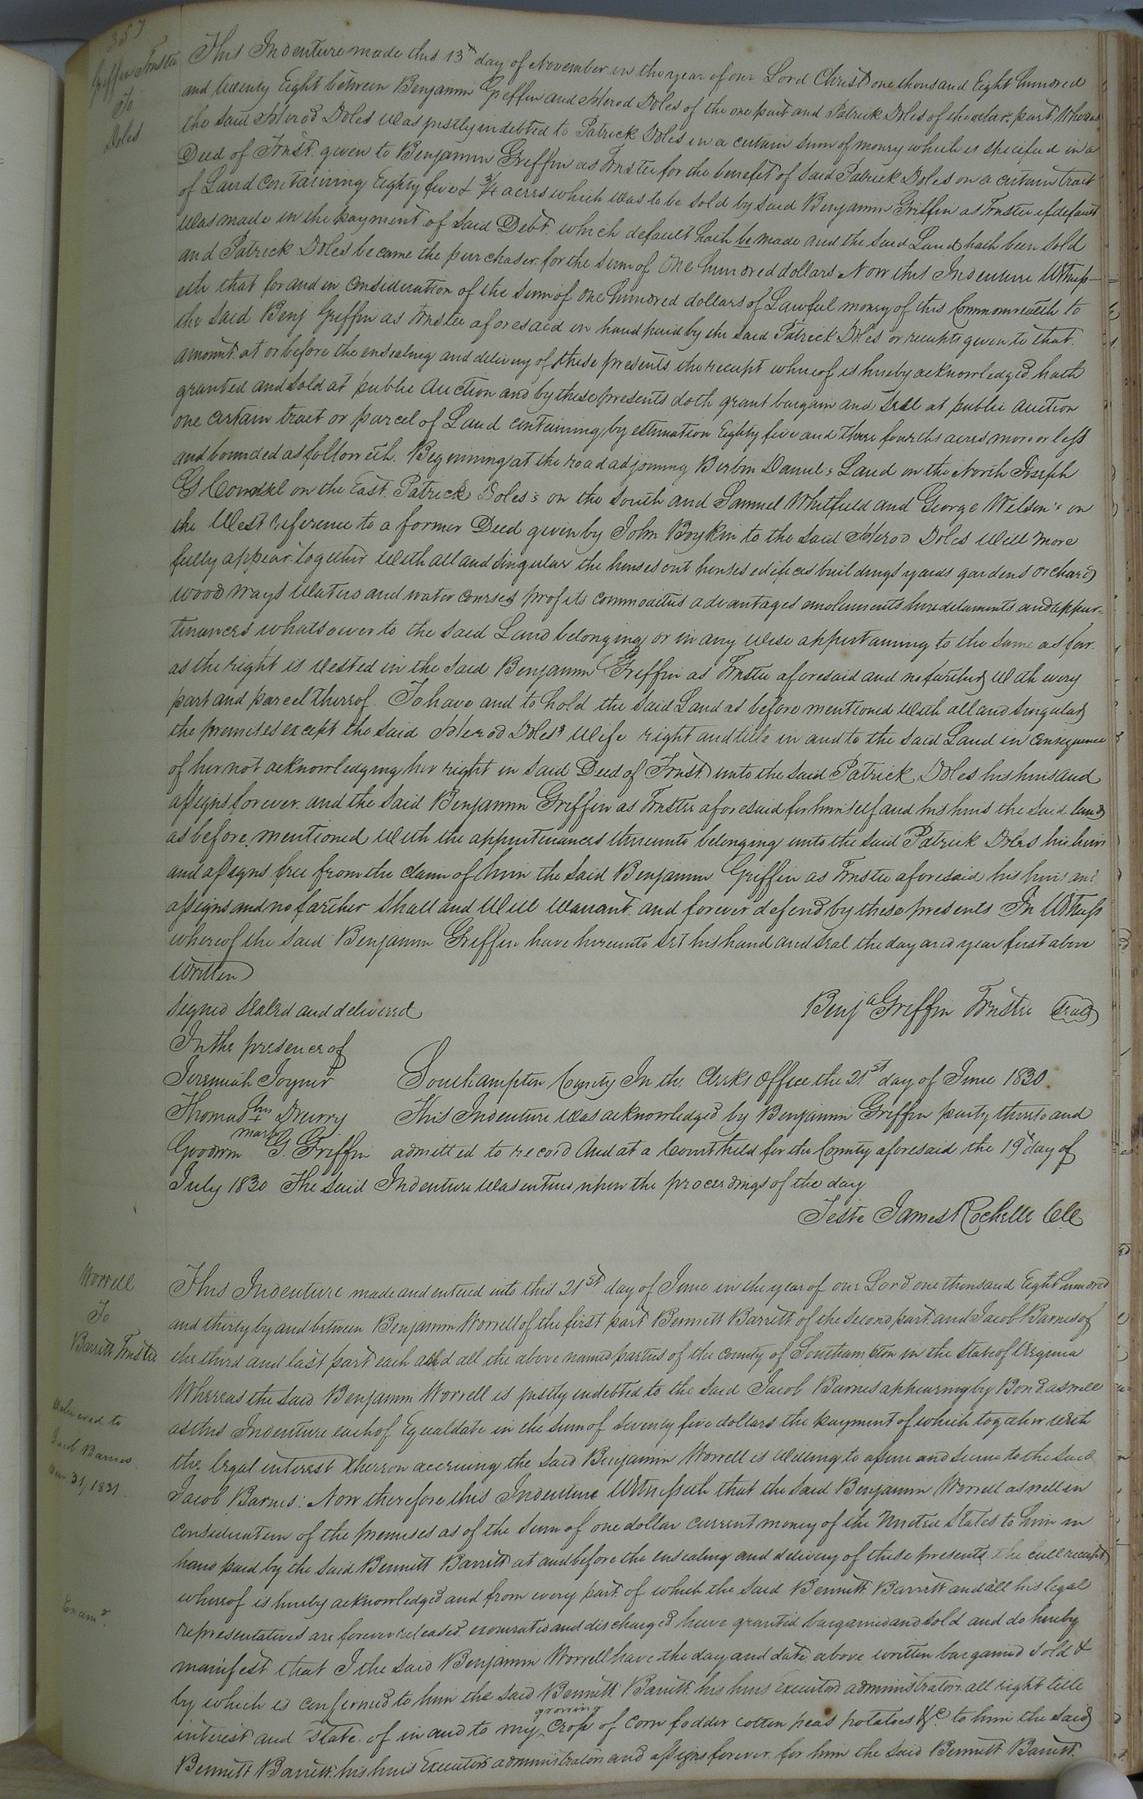 357
Griffin Trustee
To
Doles
This Indenture made this 13th day of November in the year of our Lord Christ one thousand Eight hundred
and twenty Eight between Benjamin Griffin and Herod Doles of the one part and Patrick Doles of the other part, Whereas
the said Herod Doles was justly indebted to Patrick Doles in a certain sum of money which is specified in a
Deed of Trust given to Benjamin Griffin as Trustee for the benefit of said Patrick Doles on a certain tract
of Land containing Eighty five & 3/4 acres which was to be sold by said Benjamin Griffin as Trustee if default
was made in the payment of said Debt which default hath be made and the said Land hath been sold
and Patrick Doles became the purchaser for the sum of one hundred dollars Now this Indenture Witness-
eth that for and in consideration of the sum of one hundred dollars of Lawful money of this Commonwealth to
the said Benj Griffin as Trustee aforesaid in hand paid by the said Patrick Doles or receipts given to that
amount at or before the ensealing and delivery of these presents the receipt whereof is hereby acknowledged hath
granted and sold at public Auction and by these presents doth grant bargain and sell at public auction
one certain tract or parcel of Land containing by estimation Eighty five and three fourths acres more or less
and bounded as followeth. Beginning at the road adjoining Berbin Daniel's Land on the North Joseph
G Council on the East. Patrick Doles's on the South and Samuel Whitfield and George Wilson's on
the West reference to a former Deed given by John Boykin to the said Herod Doles will more
fully appear together with all and singular the houses out houses edifices buildings yards gardens orchards
wood ways waters and water courses profits commodities advantages emoluments hereditaments and appur-
tenances whatsoever to the said Land belonging or in any wise appertaining to the same as far
as the right is vested in the said Benjamin Griffin as Trustee aforesaid and no farther with every
part and parcel thereof. To have and to hold the said Land as before mentioned with all and singular
the premises except the said Herod Doles' Wife right and title in and to the said Land in consequence
of her not acknowledging her right in said Deed of Trust unto the said Patrick Doles his heirs and
assigns forever. and the said Benjamin Griffin as Trustee aforesaid for himself and his heirs the said land
as before mentioned with the appurtenances thereunto belonging unto the said Patrick Doles his heirs
and assigns free from the claim of him the said Benjamin Griffin as Trustee aforesaid his heirs and
assigns and no farther shall and will warrant and forever defend by these presents In Witness
whereof the said Benjamin Griffin have hereunto set his hand and seal the day and year first above
written
Signed Sealed and delivered
Benja Griffin Trustee Seal
In the presence of
Jeremiah Joyner
Southampton County In the Clerks Office the 21st day of June 1830
Thomas his + mark Drurry
This Indenture was acknowledged by Benjamin Griffin party thereto and
Goodwin G. Griffin
admitted to record And at a Court held for the County aforesaid the 19th day of
July 1830 The said Indenture was entered upon the proceedings of the day
Teste James Rochelle Clk
Worrell
To
Barrett Trustee
Delivered to
Jacob Barnes
31/1831
Examd
This Indenture made and entered into this 21st day of June in the year of our Lord one thousand Eight hundred
and thirty by and between Benjamin Worrell of the first part Bennett Barrett of the second part. and Jacob Barnes of
the third and last part each and all the above named parties of the County of Southampton in the State of Virginia
Whereas the said Benjamin Worrell is justly indebted to the said Jacob Barnes appearing by Bond as well
as this Indenture each of Equal date in the sum of seventy five dollars the payment of which together with
the legal interest thereon accruing the said Benjamin Worrell is willing to assure and secure to the said
Jacob Barnes: Now therefore this Indenture Witnesseth that the said Benjamin Worrell as well in
consideration of the premises as of the sum of one dollar current money of the United States to him in
hand paid by the said Bennett Barrett at and before the ensealing and delivery of these presents the full receipt
whereof is hereby acknowledged and from every part of which the said Bennett Barrett and all his legal
representatives are forever released exonerated and discharged have granted bargained and sold and do hereby
manifest that I the said Benjamin Worrell have the day and date above written bargained sold &
by which is confirmed to him the said Bennett Barrett his heirs Executors administrators all right title
interest and State of in and to my growing Crop of corn fodder cotton peas potatoes &c. to him the said
Bennett Barrett his heirs Executors administrators and assigns forever. for him the said Bennett Barrett